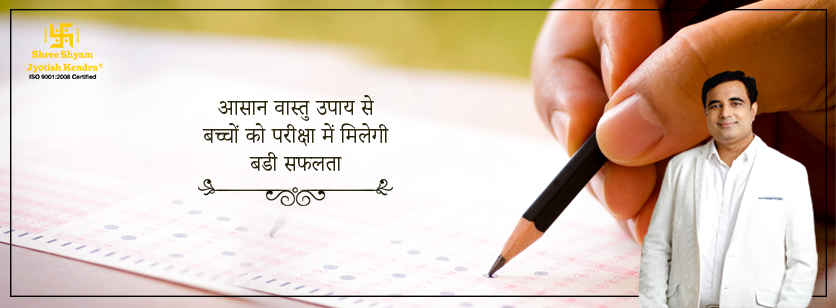 Shree Shyam
Jyotish Kendra®
ISO 9001:2008 Certified
आसान वास्तु उपाय से
बच्चों को परीक्षा में मिलेगी
बडी सफलता